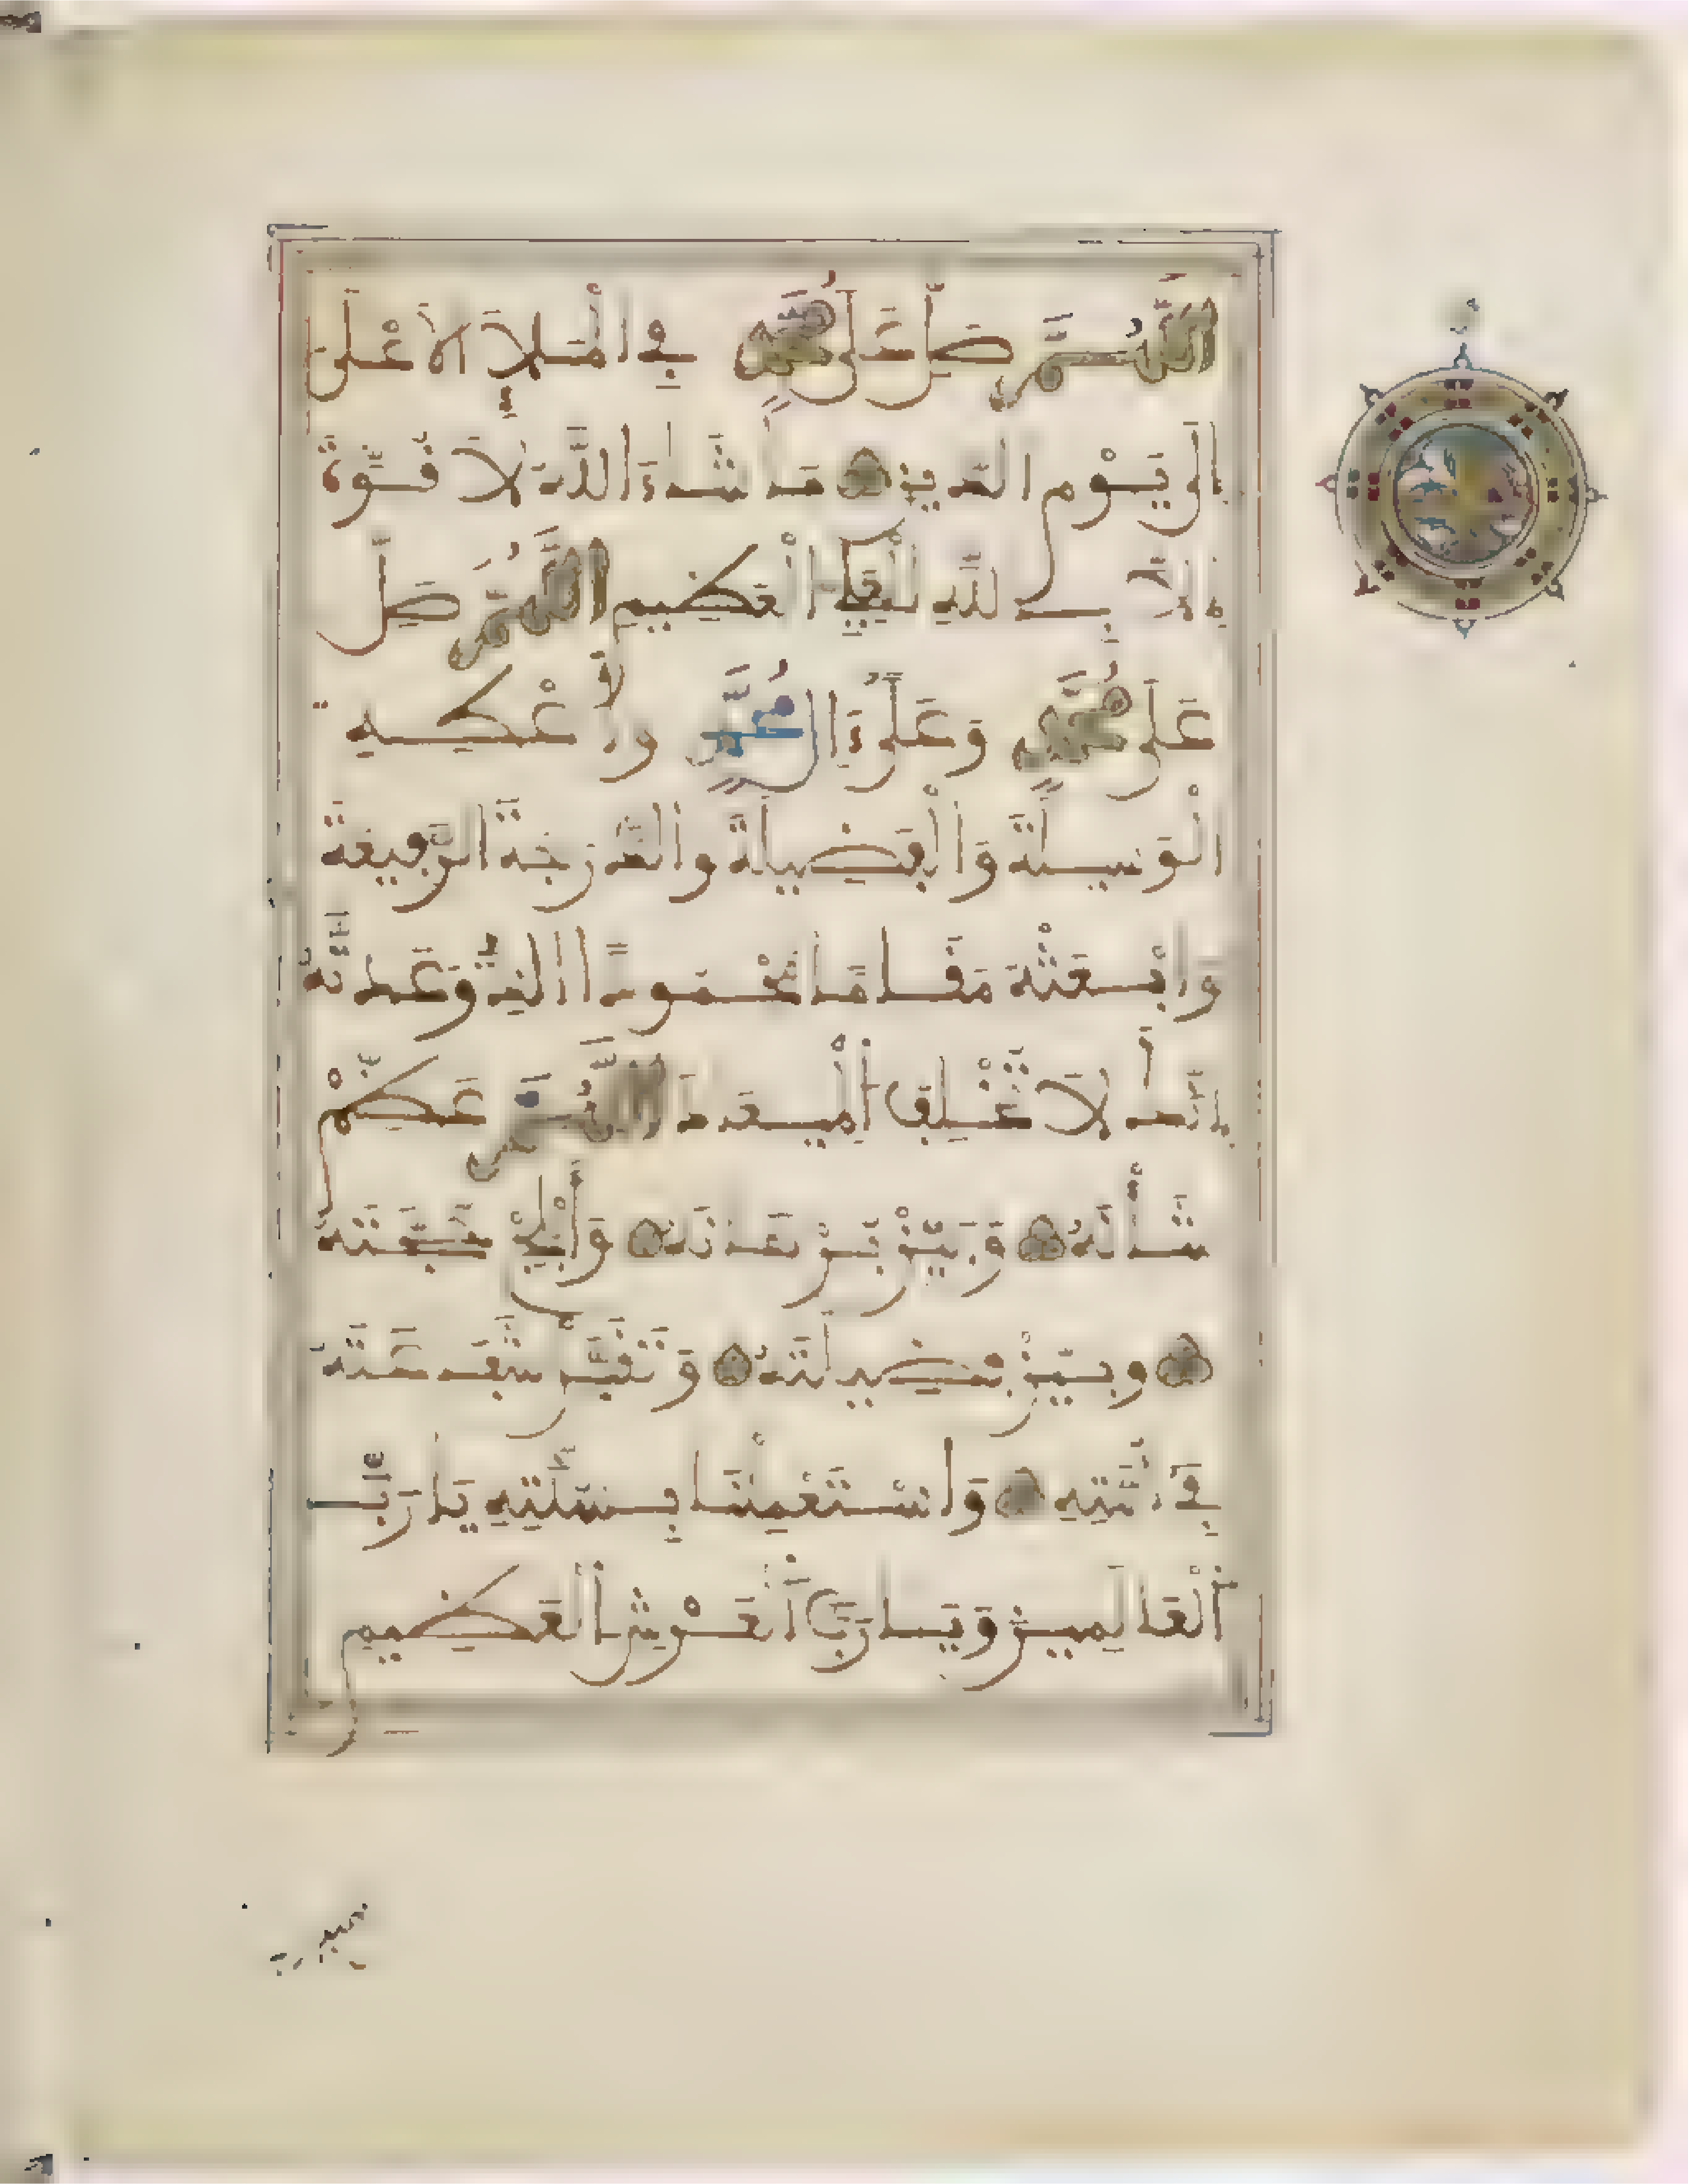 اللَّهُمَّ صَلِّ عَلَى مُحَمَّدٍ فِي الْمَلَإِ الْأَعْلَى
إِلَى يَوْمِ الدِّينِ مَا شَاءَ اللَّهُ لَا قُوَّةَ
إِلَّا بِاللَّهِ الْعَلِيِّ الْعَظِيمِ اللَّهُمَّ صَلِّ
عَلَى مُحَمَّدٍ وَعَلَى ءَالِ مُحَمَّدٍ وَأَعْطِهِ
الْوَسِيلَةَ وَالْفَضِيلَةَ وَالدَّرَجَةَ الرَّفِيعَةَ
وَابْعَثْهُ مَقَامًا مَحْمُودًا الَّذِي وَعَدْتَهُ
إِنَّكَ لَا تُخْلِفُ الْمِيعَادَ اللَّهُمَّ عَظِّمْ
شَأْنَهُ وَبَيِّنْ بُرْهَانَهُ وَأَبْلِجْ حُجَّتَهُ
وَبَيِّنْ فَضِيلَتَهُ وَتَقَبَّلْ شَفَاعَتَهُ
فِي أُمَّتِهِ وَاسْتَعْمِلْنَا بِسُنَّتِهِ يَا رَبَّ
الْعَالَمِينَ وَيَا رَبَّ الْعَرْشِ الْعَظِيمِ